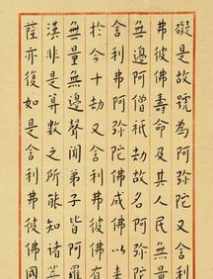 礙是故號為阿彌陀又舍利
弗彼佛壽命及其人民無量
無邊阿僧祇劫故名阿彌陀
舍利弗阿彌陀佛成佛以来
於今十劫又舍利弗彼佛有
無量無邊聲聞弟子皆阿羅
漢非是算數之所能知諸菩
薩亦復如是舍利弗彼佛國